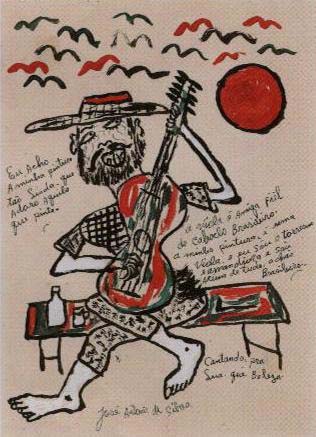 Eu Acho
A minha pintura
tão Linda. que
Adoro Aquilo
que pinto.
a viola é Amiga Fiil
do Caboclo Brasileiro.
a minha pintura, é uma
Viola. e eu sou o
e sou
de tudo, a
Brasileiro.
Cantando, pra
Lua. que Beleza.
José Antonio da Silva